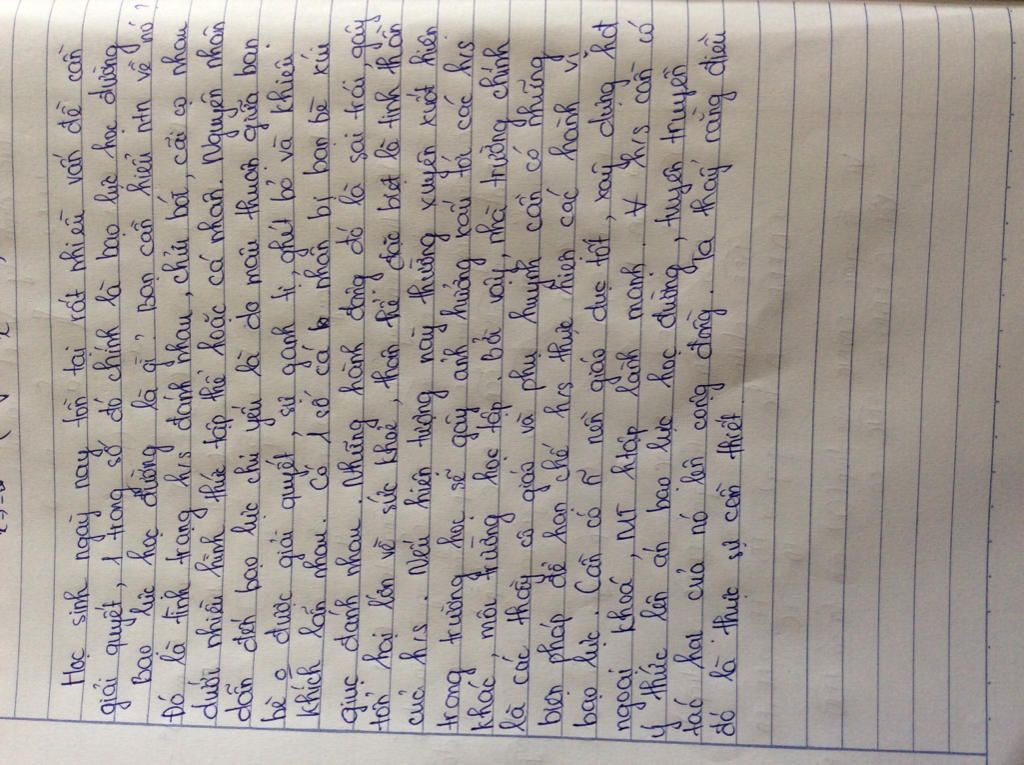 Học sinh ngày nay tồn tại rất nhiều vấn đề cần
giải quyết, 1 trong số đó chính là bạo lực học đường
Bạo lực học đường là gì, bạn cần hiểu ntn về nó?
Đó là tình trạng h/s đánh nhau, chửi bới, cãi cọ nhau
dưới nhiều hình thức tập thể hoặc cá nhân. Nguyên nhân
dẫn đến bạo lực chủ yếu là do mâu thuẫn giữa bạn
bè o được giải quyết, sự ganh tị, ghét bỏ và khiêu
khích lẫn nhau. Có 1 số cá nhân bị bạn bè xúi
giục đánh nhau. Những hành động đó là sai trái, gây
tổn hại lớn về sức khoẻ, thân thể đặc biệt là tinh thần
của h/s. Nếu hiện tượng này thường xuyên xuất hiện
trong trường học sẽ gây ảnh hưởng xấu tới các h/s
khác, môi trường học tập. Bởi vậy, nhà trường chính
là các thầy cô giáo và phụ huynh cần có những
biện pháp để hạn chế h/s thực hiện các hành vi
bạo lực. Cần có n~ nền giáo dục tốt, xây dựng hđ
ngoại khoá, MT htập lành mạnh. ∀ h/s cần có
ý thức lên án bạo lực học đường, tuyên truyền
tác hại của nó lên cộng đồng. Ta thấy rằng điều
đó là thực sự cần thiết